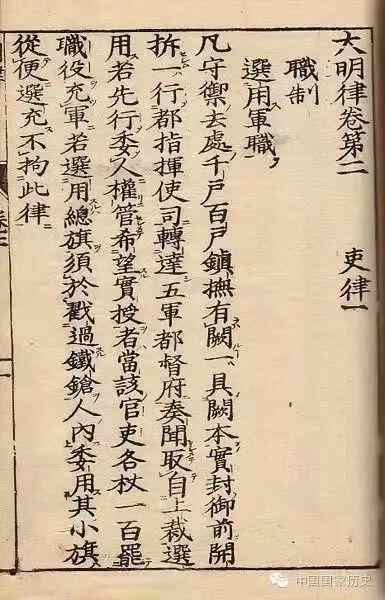 大明律卷第二 吏律一
職制
選用軍職
凡守禦去處千戶百戶鎮撫有闕一具闕本實封御前開
拆一行都指揮使司轉達五軍都督府奏聞取自上裁選
用若先行委人權管希望實授者當該官吏各杖一百罷
職役充軍若選用總旗須於戳過鐵鎗人內委用其小旗
從便選充不拘此律
中国国家历史